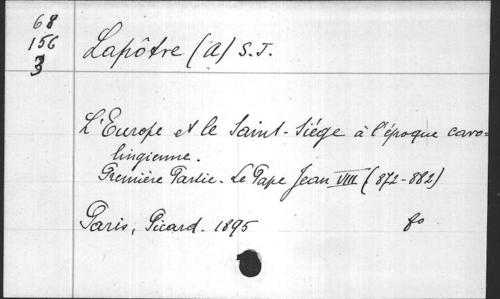 68
156
3
Lapôtre (A) S.J.
L'Europe et le Saint-Siége à l'époque caro-
lingienne.
Première Partie. Le Pape Jean VIII (872-882)
Paris, Picard. 1895 fo